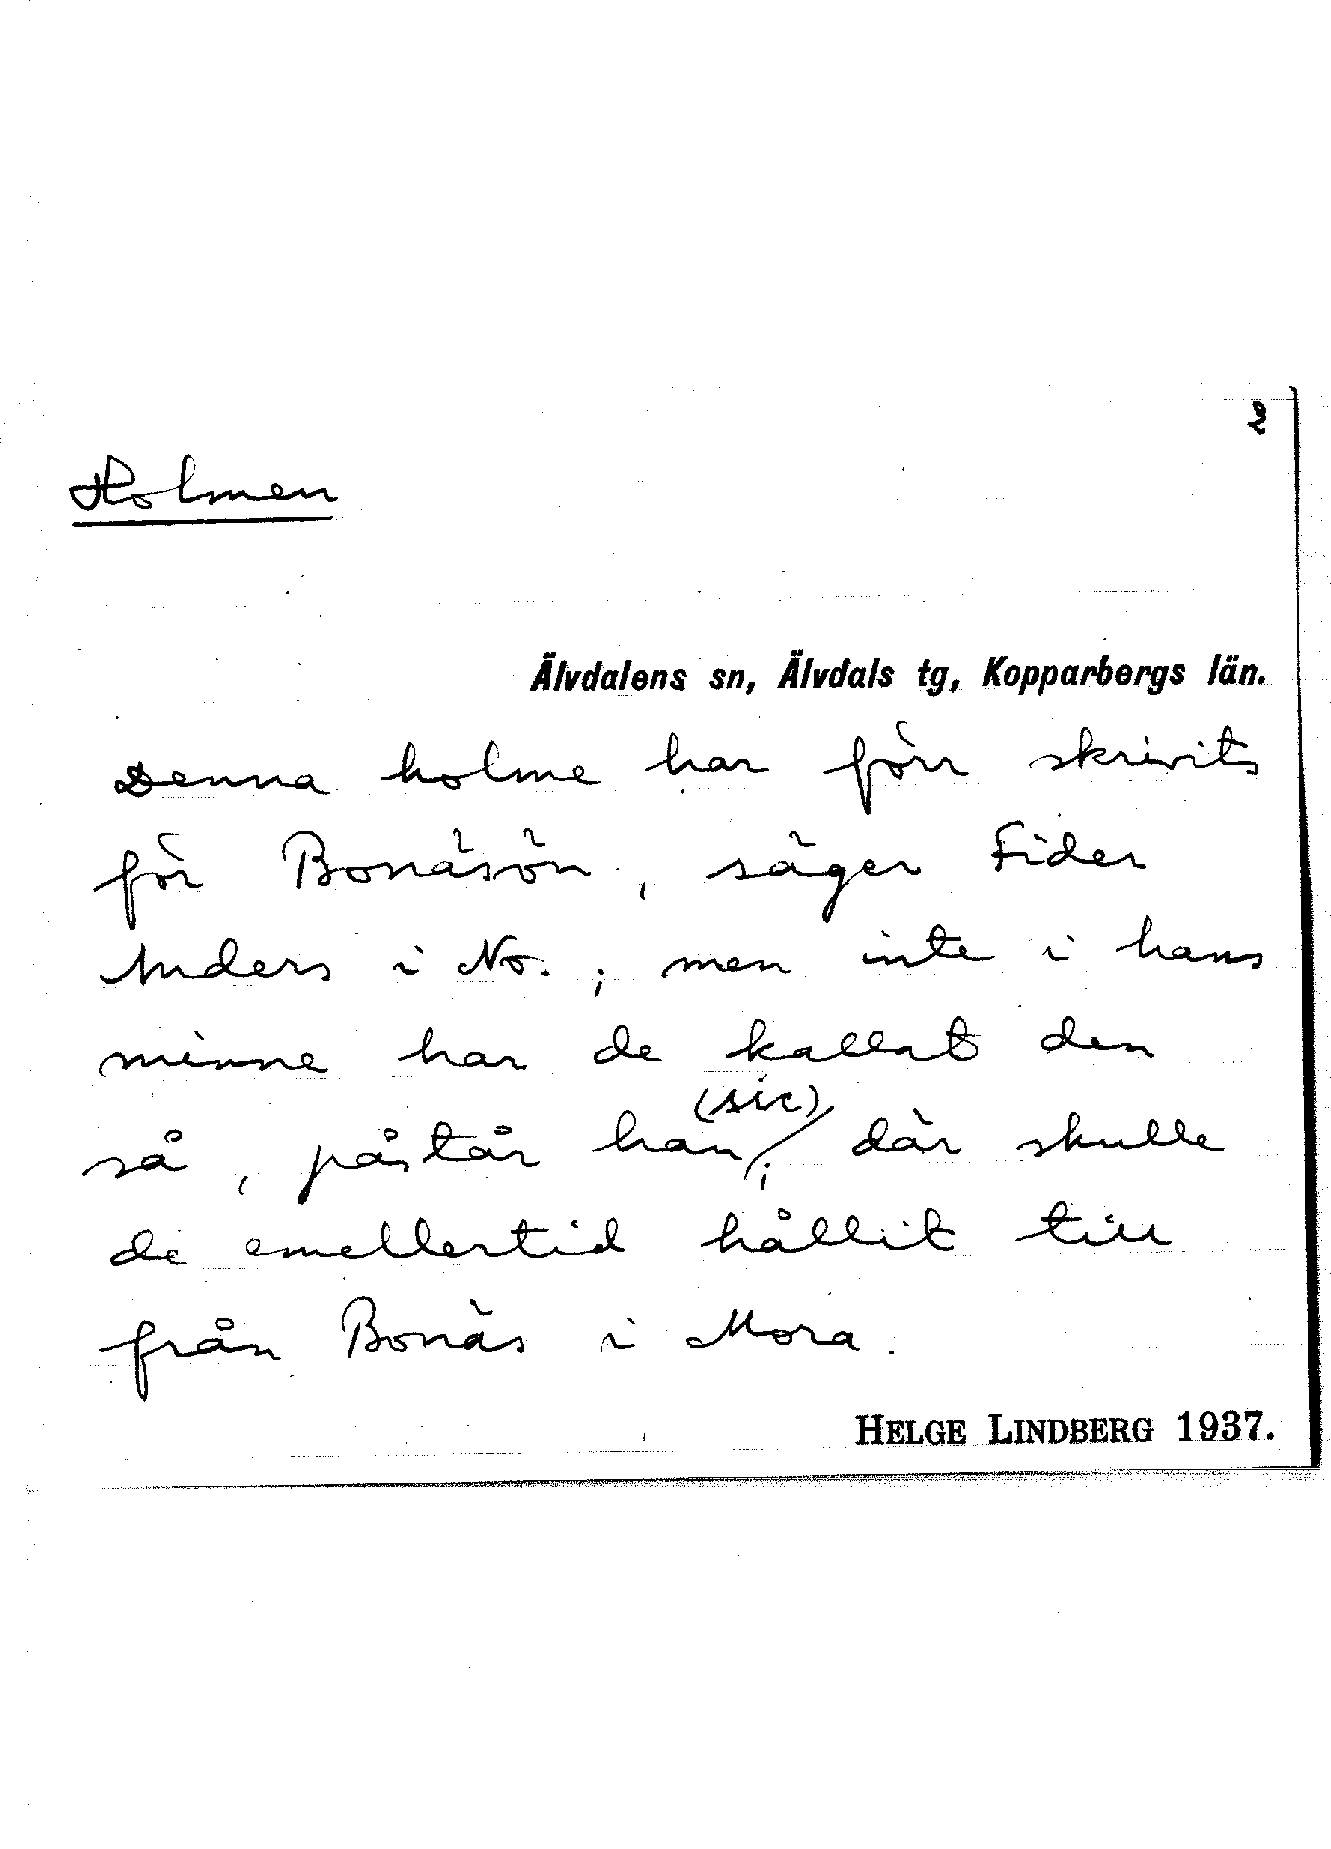 2
Holmen
Älvdalens sn, Älvdals tg, Kopparbergs län.
Denna holme har förr skrivits
för Bonäsön, säger Fider
Anders i No.; men inte i hans
minne har de kallat den
så, påstår han (sic); där skulle
de emellertid hållit till
från Bonäs i Mora.
HELGE LINDBERG 1937.